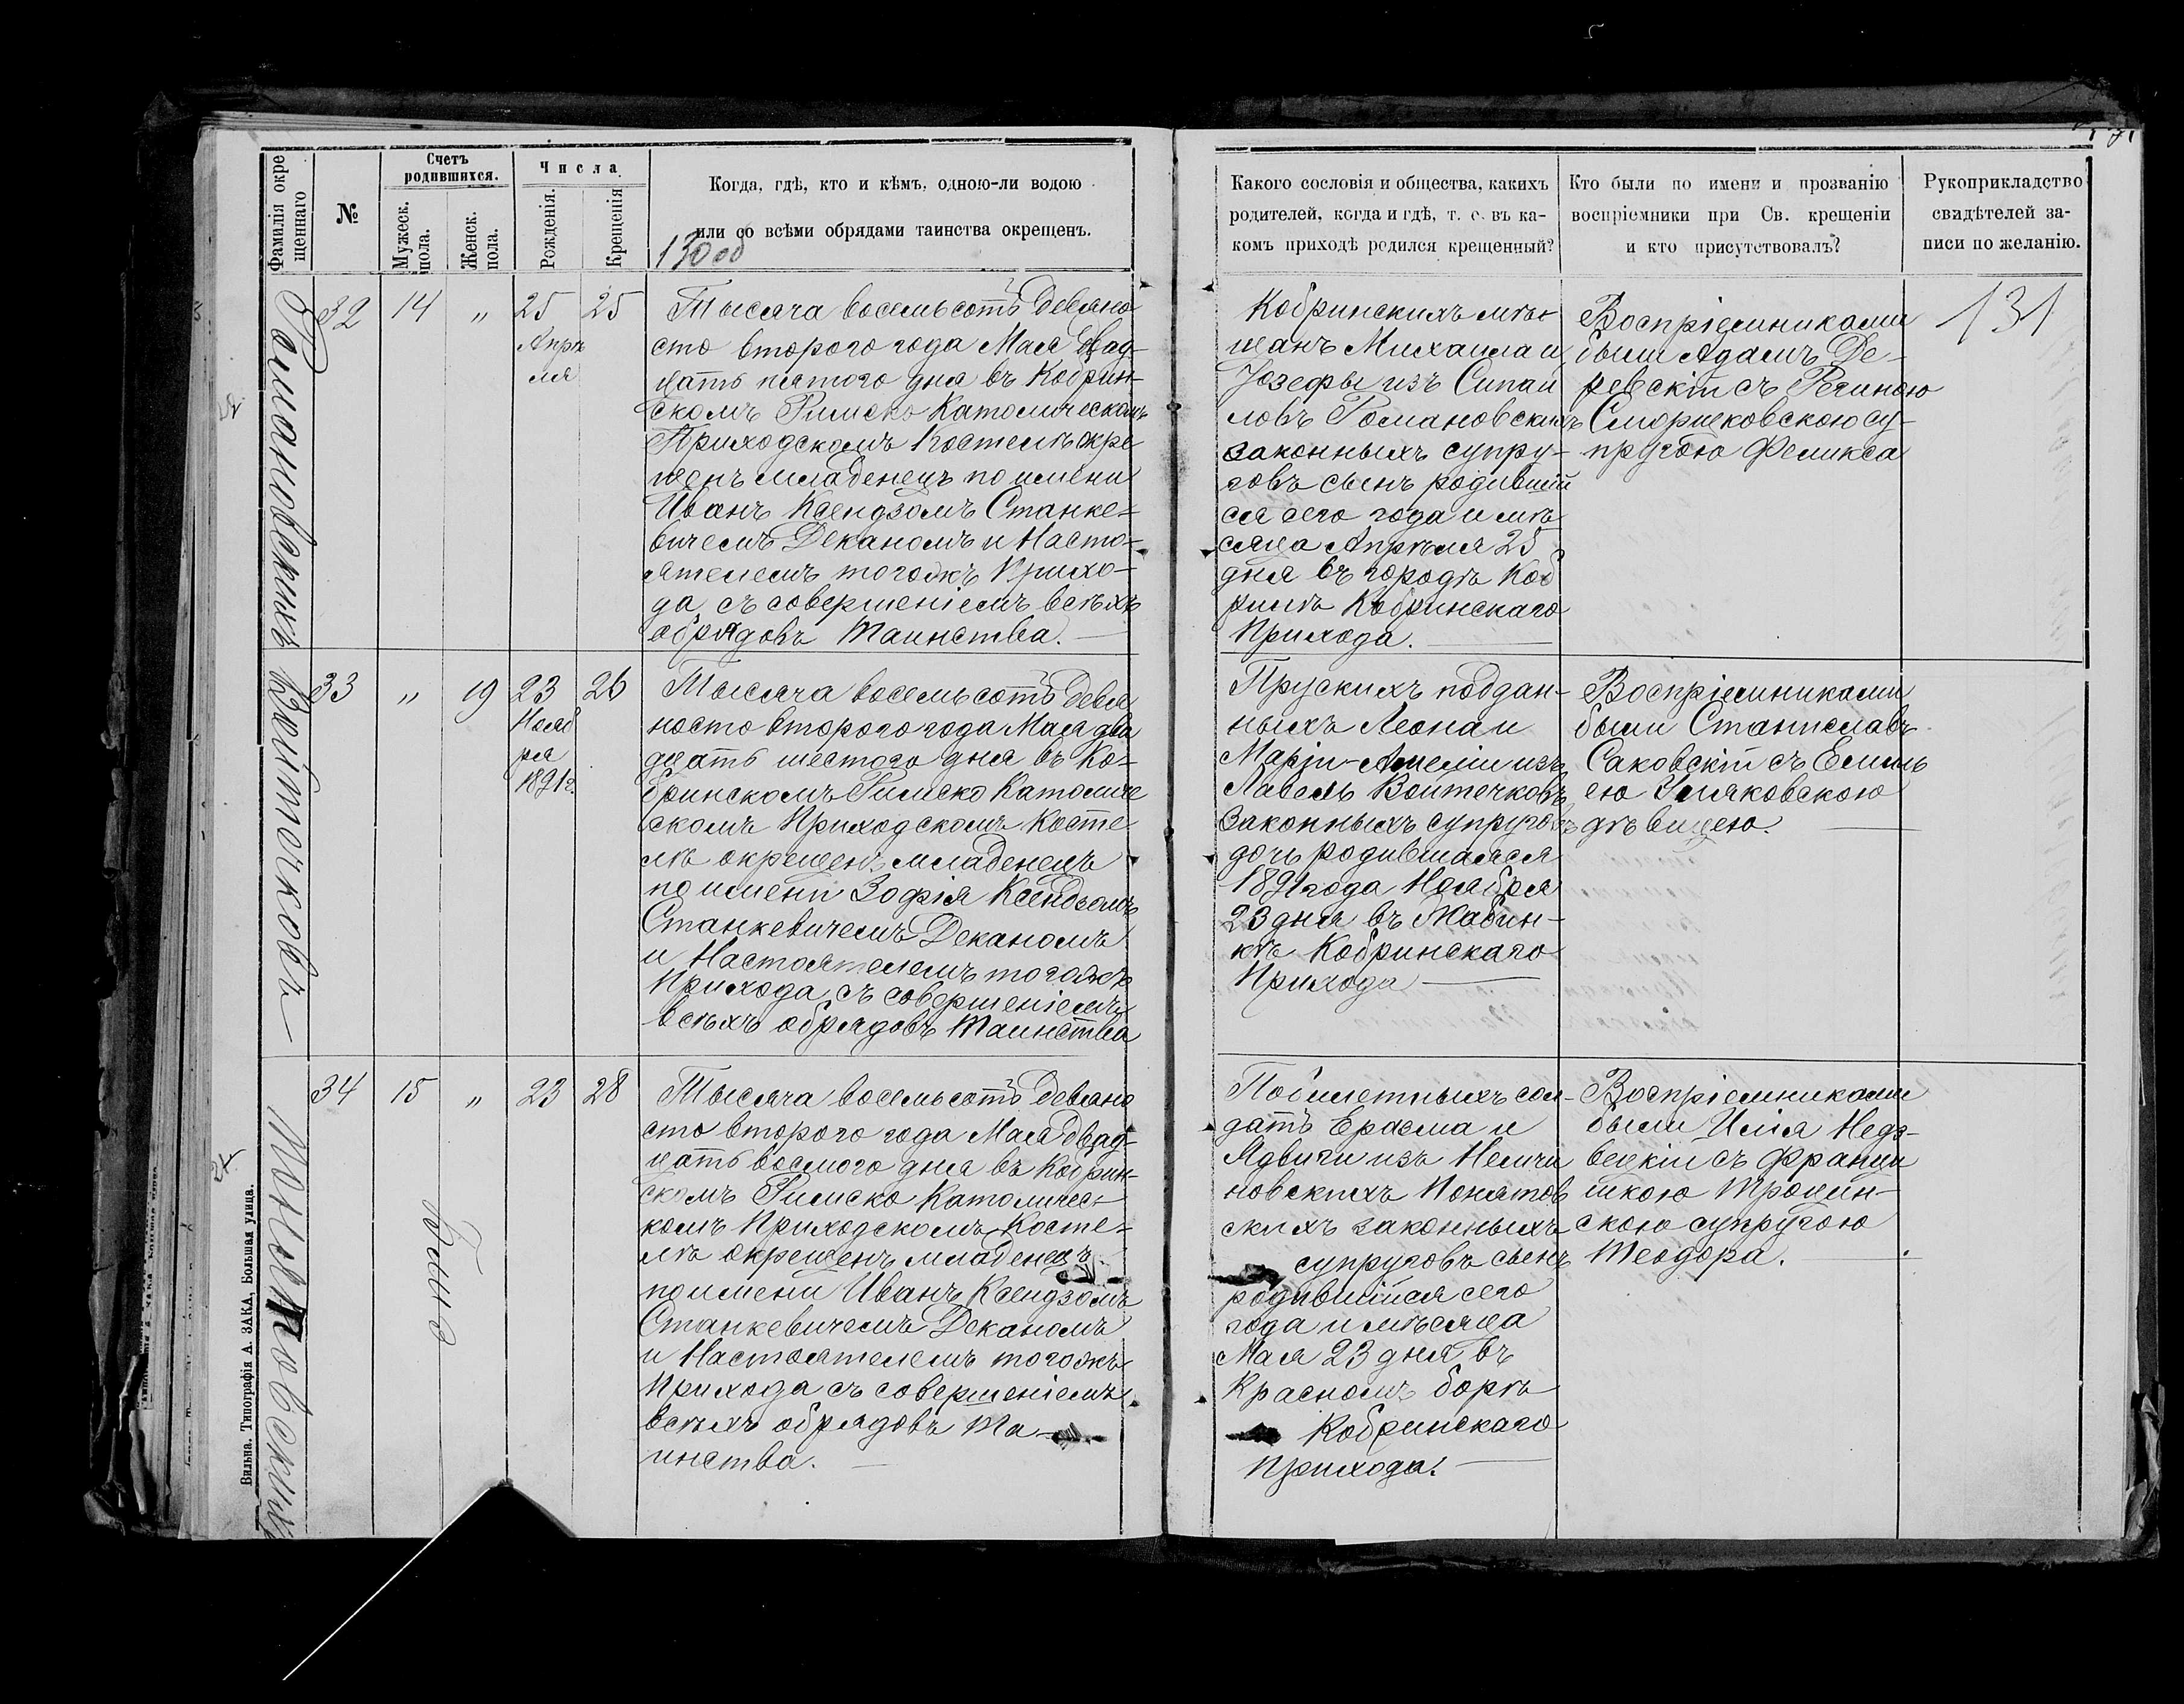 Фамилія окре
щеннаго
№
Счетъ
родившихся.
Мужеск.
пола.
Женск.
пола.
Числа
Рожденія.
Крещенія
Когда, гдѣ, кто и кѣмъ, одною-ли водою
или со всѣми обрядами таинства окрещенъ.
Какого сословія и общества, какихъ
родителей, когда и гдѣ, т. е. въ ка-
комъ приходѣ родился крещенный?
Кто были по имени и прозванію
воспріемники при Св. крещеніи
и кто присутствовалъ?
Рукоприкладство
свидѣтелей за-
писи по желанію.
131
Романовскихъ
32
14
"
25
Апрѣ
ля
25
Тысяча восемьсотъ девяно
сто второго года Мая двад-
цать пятого дня въ Кобрин-
скомъ Римско Католическомъ
Приходскомъ Костелѣ окре
щенъ младенецъ по имени
Иванъ Ксендзомъ Станке-
вичемъ Деканомъ и Насто-
ятелемъ тогожъ Прихо-
да, съ совершеніемъ всѣхъ
обрядовъ Таинства.
Кобринскихъ мѣ-
щанъ Михаила и
Юзефы изъ Сипай
ловъ Романовскихъ
законныхъ супру-
говъ сынъ родивший
ся сего года и мѣ
сяца Апрѣля 25
дня въ городѣ Коб
ринѣ Кобринскаго
Прихода.
Воспріемниками
были Адамъ Де-
ревскій съ Региною
Сморщковскою су-
пругою Феликса
Войтечковъ
33
"
19
23
Нояб
ря
1891г.
26
Тысяча восемьсотъ девя
носто второго года Мая два
дцать шестого дня въ Ко-
бринскомъ Римско Католиче
скомъ Приходскомъ Косте
лѣ окрещенъ младенецъ
по имени Зофія Ксендзомъ
Станкевичемъ Деканомъ
и Настоятелемъ тогожъ
Прихода, съ совершеніемъ
всѣхъ обрядовъ Таинства
Прускихъ поддан-
ныхъ Леона и
Маріи-Амеліи изъ
Лавель Войтечковъ
законныхъ супруговъ
дочь родившаяся
1891 года Ноября
23 дня въ Жабин-
кѣ Кобринскаго
Прихода
Воспріемниками
были Станиславъ
Саковскій съ Емиль
ею Уляковскою
дѣвицею.
Понятовскихъ
34
15
"
23
28
Тысяча восемьсотъ девяно
сто второго года Мая двад-
цать восмого дня въ Кобрин-
скомъ Римско Католичес-
комъ Приходскомъ Косте-
лѣ окрещенъ младенецъ
по имени Иванъ Ксендзомъ
Станкевичемъ Деканомъ
и Настоятелемъ тогожъ
Прихода съ совершеніемъ
всѣхъ обрядовъ Та-
инства.
Побилетныхъ сол-
датъ Ерасма и
Ядвиги изъ Неличи
новскихъ Понятов
скихъ законныхъ
супруговъ сынъ
родившійся сего
года и мѣсяца
Мая 23 дня въ
Красномъ борѣ
Кобринскаго
прихода.
Воспріемниками
были Илія Недз-
вецкій съ Франци
шкою Троцин-
скою супругою
Теодора.
Вильна. Типографія А. ЗАКА, Большая улица.